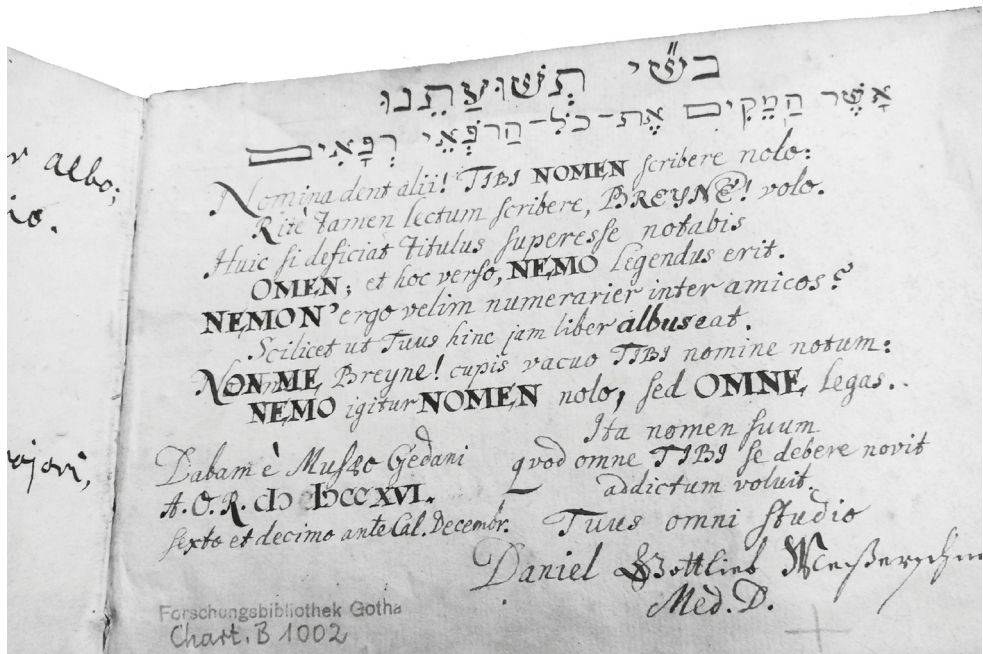 r albo;
io.
ajori,
בש״י תְשׁוּעַתֵנוּ
אֲשֶׁר הַמֵקִים אֶת־כֹל־הַרֹפְּאֵי רְפָּאִים
Nomina dent alii! TIBI NOMEN scribere nolo:
Ritè tamen lectum scribere, BREYNE! volo.
Huic si deficiat titulus superesse notabis
OMEN; et hoc verso, NEMO legendus erit.
NEMON' ergo velim numerarier inter amicos?
Scilicet ut Tuus hinc jam liber albus eat.
NON ME, Breyne! cupis vacuo TIBI nomine notum:
NEMO igitur NOMEN nolo, sed OMNE legas.
Ita nomen suum
Dabam è Musæo Gedani
quod omne TIBI se debere novit
A. O. R. CIↃ IↃCCXVI.
addictum voluit.
sexto et decimo ante Cal. Decembr.
Tuus omni studio
Daniel Gottlieb Meßerschm
Med. D.
Forschungsbibliothek Gotha
Chart. B 1002